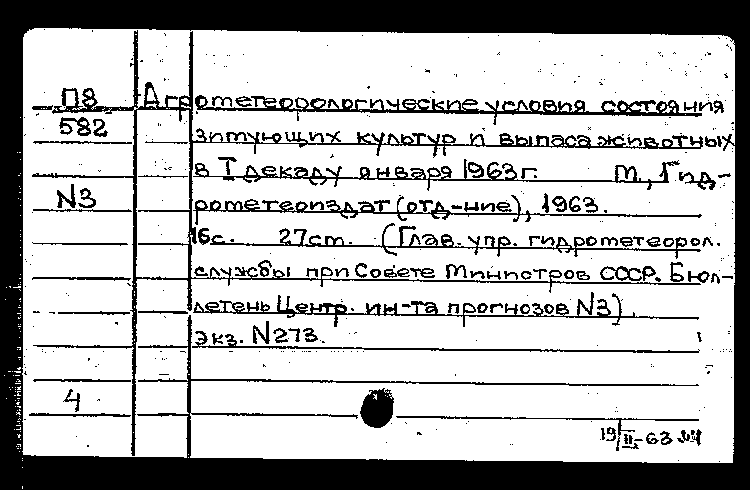 П8 Агрометеорологические условия состояния
582 зимующих культур и выпаса животных
в I декаду января 1963г. М., Гид-
N3 рометеоиздат (отд-ние), 1963.
16с. 27cm. (Глав. упр. гидрометеорол.
службы при Совете Министров СССР. Бюл-
летень Центр. ин-та прогнозов N3).
Экз. N273.
4
19/II-63